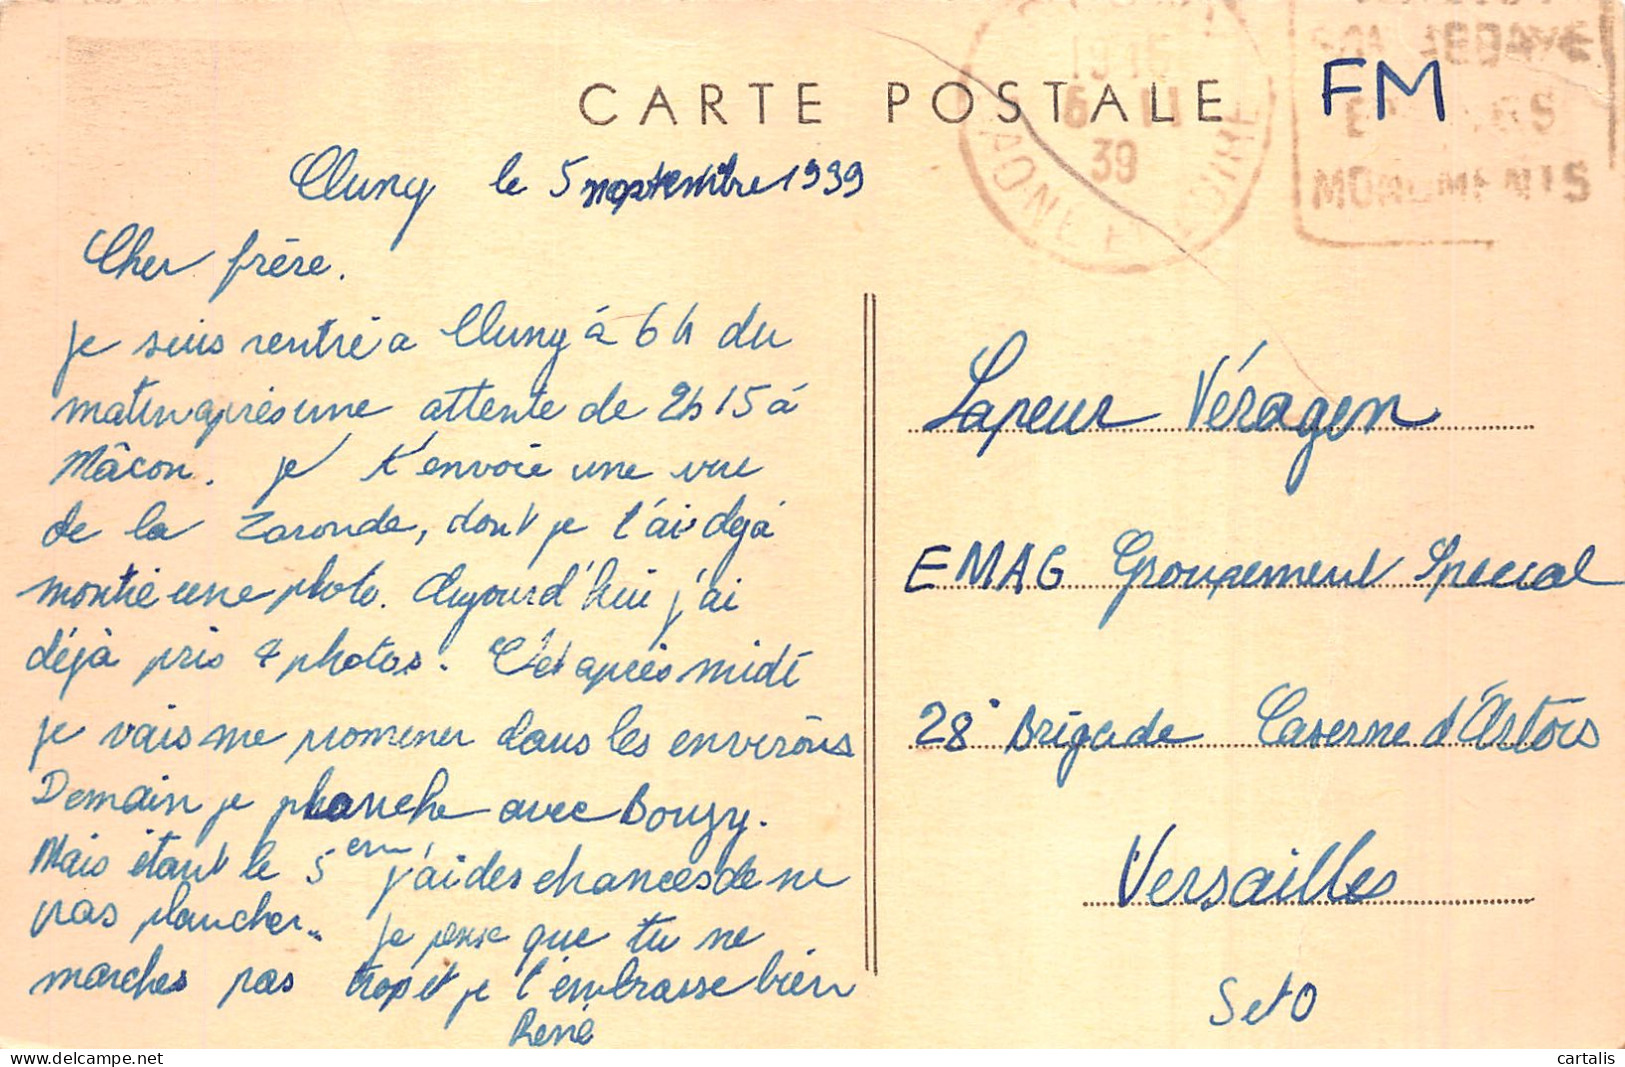 CARTE POSTALE
FM
19 15
6 11
39
SAONE ET LOIRE
MONUMENTS
Cluny le 5 novembre 1939
Cher frère.
Je suis rentré a Cluny à 6 h du
matin après une attente de 2h 15 à
Mâcon. Je t'envoie une vue
de la Zaronde, dont je t'ai déjà
montré une photo. Aujourd'hui j'ai
déjà pris 4 photos. Cet après midi
je vais me promener dans les environs
Demain je planche avec Bouzy.
Mais étant le 5em j'ai des chances de ne
pas plancher.. Je pense que tu ne
marches pas trop et je t'embrasse bien
René
Sapeur Véragen
EMAG Groupement Special
28° Brigade Caserne d'Artois
Versailles
S et O
cartalis